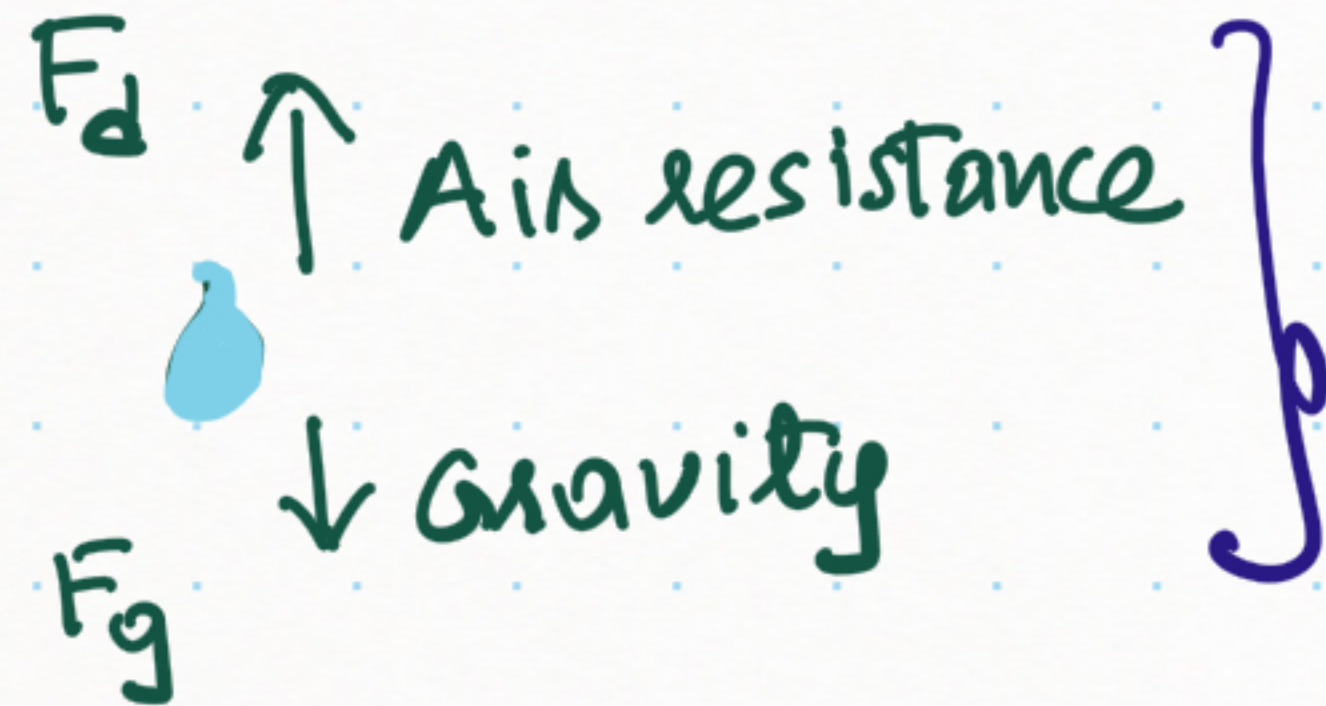 Fd
Air resistance
Gravity
Fg